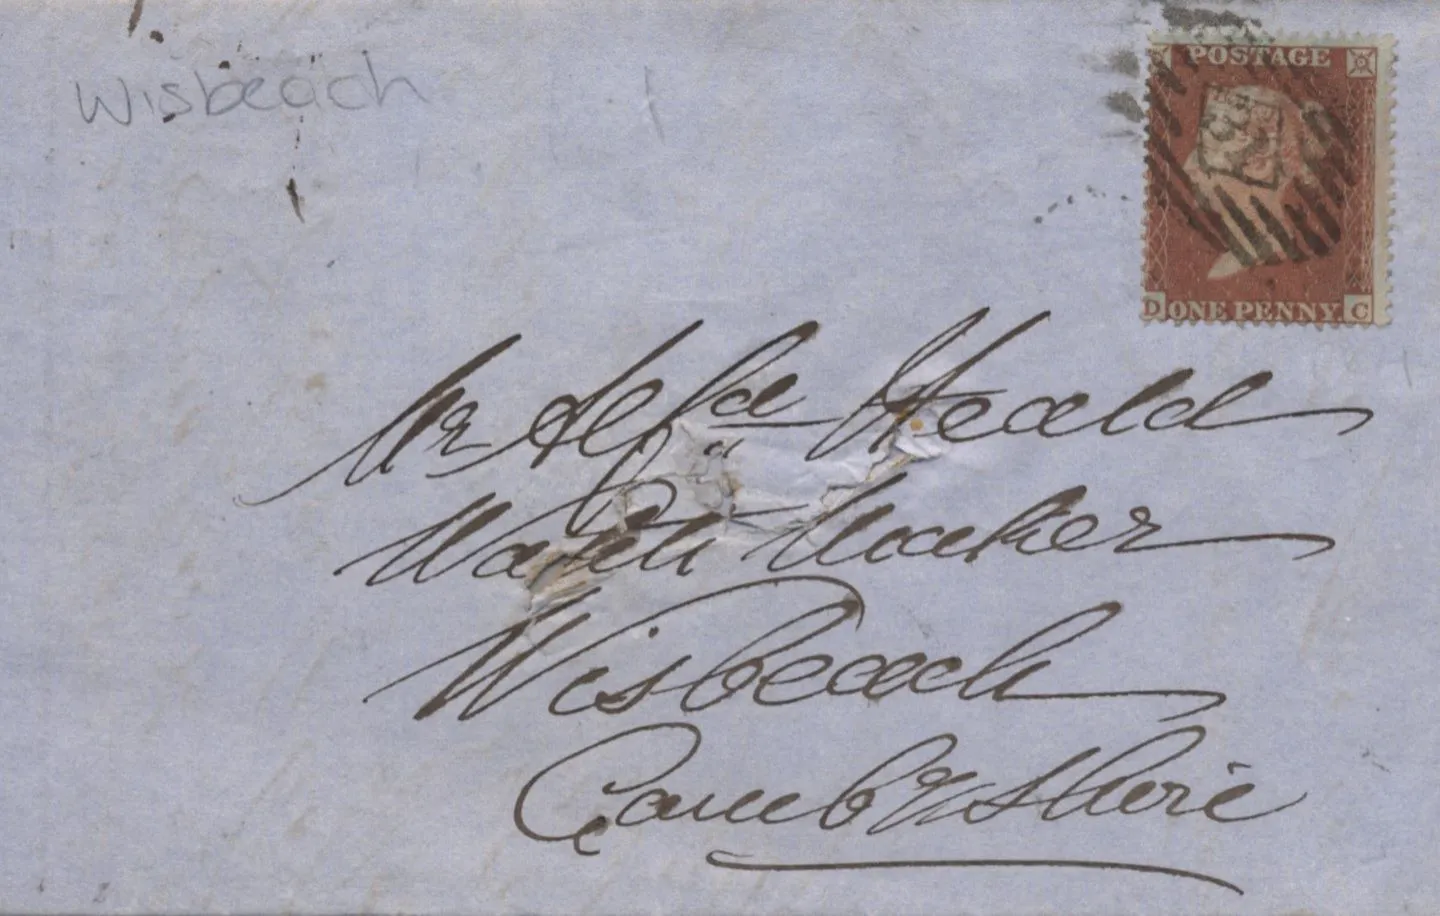 Wisbeach
POSTAGE
D ONE PENNY C
Mr Alfd Heald
Watch Maker
Wisbeach
Cambrshire